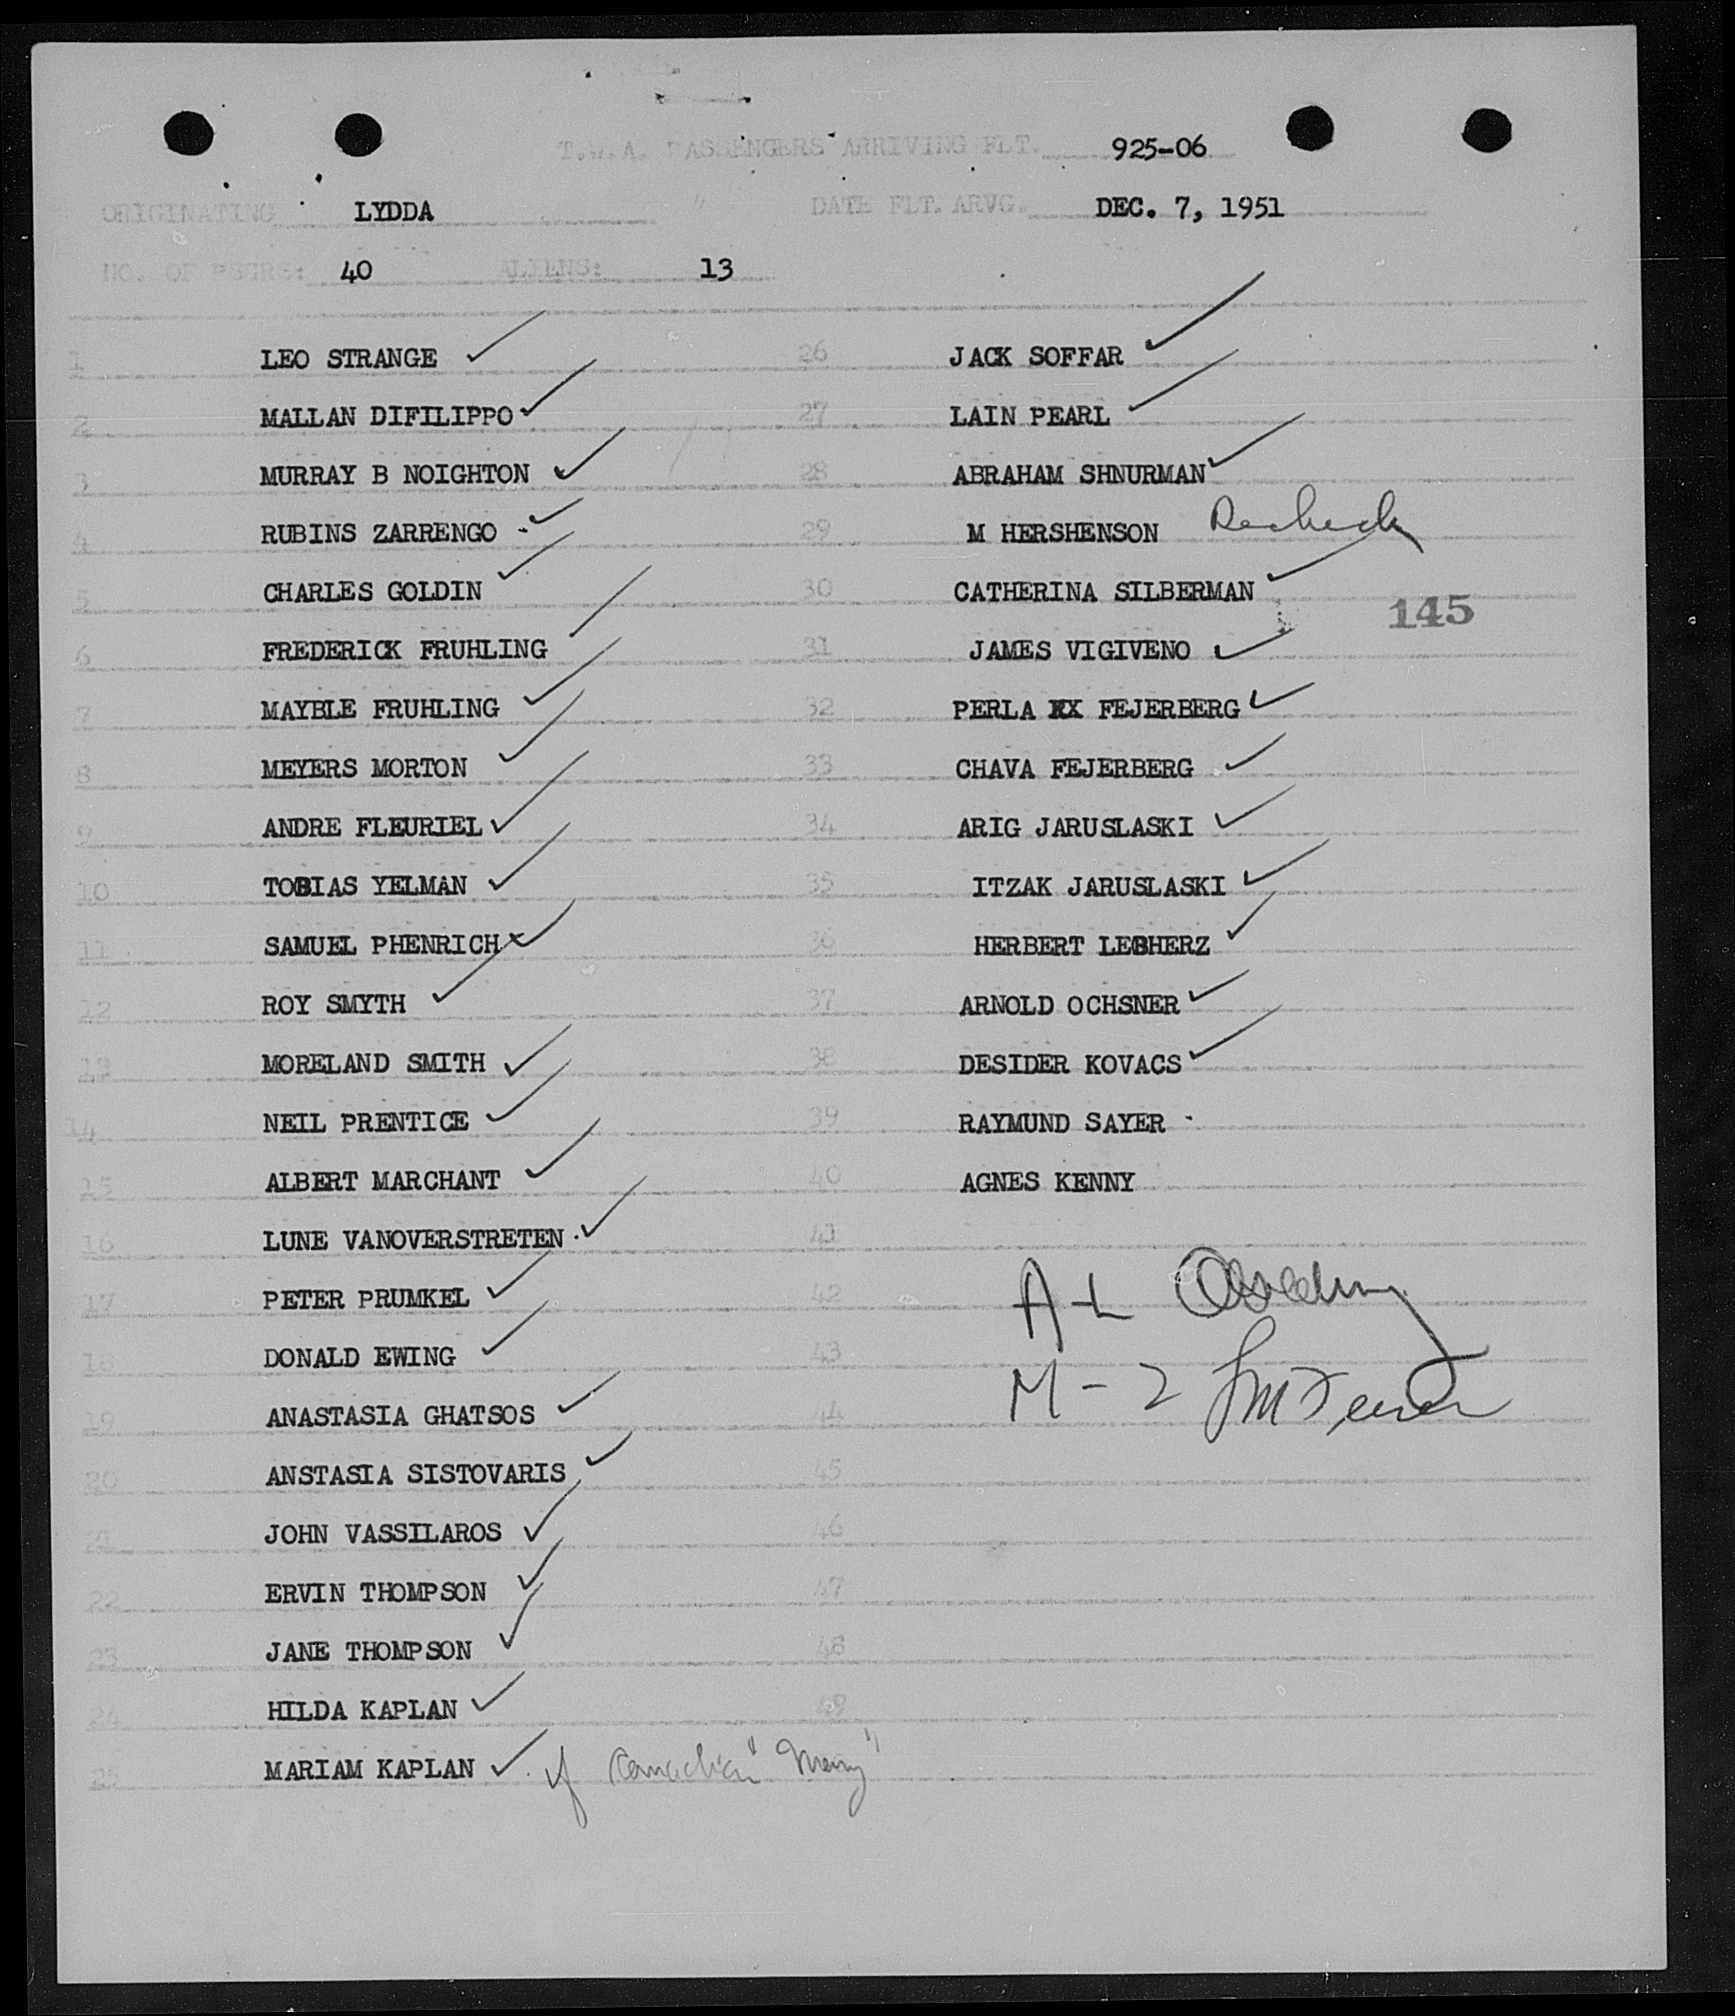 T.W.A. PASSENGERS ARRIVING FLT. 925-06
ORIGINATING LYDDA " DATE FLT. ARVG. DEC. 7, 1951
NO. OF PSGRS: 40 ALIENS: 13
1 LEO STRANGE
2 MALLAN DIFILIPPO
3 MURRAY B NOIGHTON
4 RUBINS ZARRENGO
5 CHARLES GOLDIN
6 FREDERICK FRUHLING
7 MAYBLE FRUHLING
8 MEYERS MORTON
9 ANDRE FLEURIEL
10 TOBIAS YELMAN
11 SAMUEL PHENRICH
12 ROY SMYTH
13 MORELAND SMITH
14 NEIL PRENTICE
15 ALBERT MARCHANT
16 LUNE VANOVERSTRETEN
17 PETER PRUMKEL
18 DONALD EWING
19 ANASTASIA GHATSOS
20 ANSTASIA SISTOVARIS
21 JOHN VASSILAROS
22 ERVIN THOMPSON
23 JANE THOMPSON
24 HILDA KAPLAN
25 MARIAM KAPLAN
26 JACK SOFFAR
27 LAIN PEARL
28 ABRAHAM SHNURMAN
29 M HERSHENSON Recheck
30 CATHERINA SILBERMAN
145
31 JAMES VIGIVENO
32 PERLA EX FEJERBERG
33 CHAVA FEJERBERG
34 ARIG JARUSLASKI
35 ITZAK JARUSLASKI
36 HERBERT LEBHERZ
37 ARNOLD OCHSNER
38 DESIDER KOVACS
39 RAYMUND SAYER
40 AGNES KENNY
41
42 A-L
43 M-2
44
45
46
47
48
49